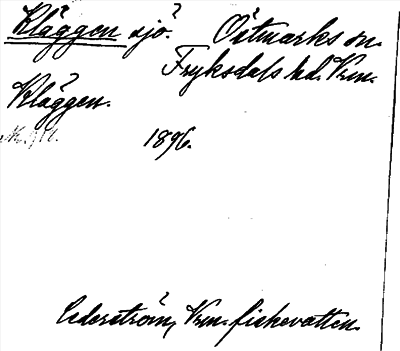 Kläggen sjö? Östmarks sn.
Fryksdals hd. Vrm.
Kläggen.
1896.
Cederström, Vrm. fiskevatten.